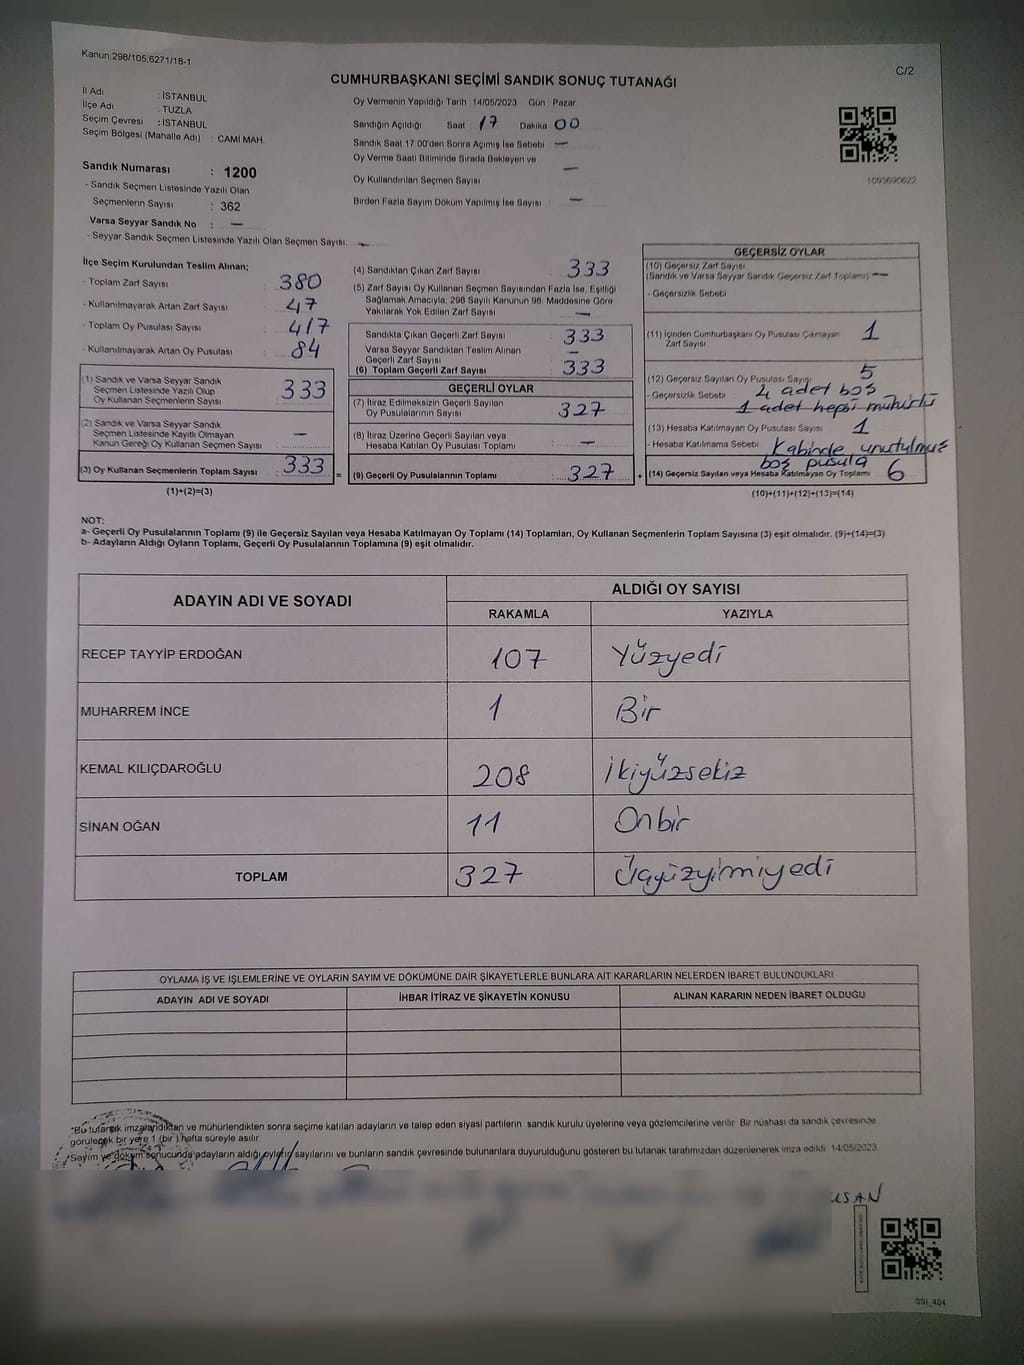 Kanun:298/105;6271/18-1
C/2
CUMHURBAŞKANI SEÇİMİ SANDIK SONUÇ TUTANAĞI
İl Adı : İSTANBUL
İlçe Adı : TUZLA
Seçim Çevresi : İSTANBUL
Seçim Bölgesi (Mahalle Adı) : CAMİ MAH.
Sandık Numarası : 1200
- Sandık Seçmen Listesinde Yazılı Olan
Seçmenlerin Sayısı : 362
Varsa Seyyar Sandık No : —
- Seyyar Sandık Seçmen Listesinde Yazılı Olan Seçmen Sayısı: —
Oy Vermenin Yapıldığı Tarih : 14/05/2023 Gün : Pazar
Sandığın Açıldığı Saat : 17 Dakika 00
Sandık Saat 17:00'den Sonra Açımış İse Sebebi : —
Oy Verme Saati Bitiminde Sırada Bekleyen ve
Oy Kullandırılan Seçmen Sayısı : —
Birden Fazla Sayım Döküm Yapılmış İse Sayısı : —
1093690622
İlçe Seçim Kurulundan Teslim Alınan;
- Toplam Zarf Sayısı : 380
- Kullanılmayarak Artan Zarf Sayısı : 47
- Toplam Oy Pusulası Sayısı : 417
- Kullanılmayarak Artan Oy Pusulası : 84
(1) Sandık ve Varsa Seyyar Sandık
Seçmen Listesinde Yazılı Olup
Oy Kullanan Seçmenlerin Sayısı : 333
(2) Sandık ve Varsa Seyyar Sandık
Seçmen Listesinde Kayıtlı Olmayan
Kanun Gereği Oy Kullanan Seçmen Sayısı : —
(3) Oy Kullanan Seçmenlerin Toplam Sayısı : 333 =
(1)+(2)=(3)
(4) Sandıktan Çıkan Zarf Sayısı : 333
(5) Zarf Sayısı Oy Kullanan Seçmen Sayısından Fazla İse, Eşitliği
Sağlamak Amacıyla, 298 Sayılı Kanunun 98. Maddesine Göre
Yakılarak Yok Edilen Zarf Sayısı : —
Sandıkta Çıkan Geçerli Zarf Sayısı : 333
Varsa Seyyar Sandıktan Teslim Alınan
Geçerli Zarf Sayısı : —
(6) Toplam Geçerli Zarf Sayısı : 333
GEÇERLİ OYLAR
(7) İtiraz Edilmeksizin Geçerli Sayılan
Oy Pusulalarının Sayısı : 327
(8) İtiraz Üzerine Geçerli Sayılan veya
Hesaba Katılan Oy Pusulası Sayısı : —
(9) Geçerli Oy Pusulalarının Toplamı : 327 +
GEÇERSİZ OYLAR
(10) Geçersiz Zarf Sayısı
(Sandık ve Varsa Seyyar Sandık Geçersiz Zarf Toplamı) —
- Geçersizlik Sebebi
(11) İçinden Cumhurbaşkanı Oy Pusulası Çıkmayan
Zarf Sayısı 1
(12) Geçersiz Sayılan Oy Pusulası Sayısı 5
- Geçersizlik Sebebi 4 adet boş
1 adet hepsi mühürlü
(13) Hesaba Katılmayan Oy Pusulası Sayısı 1
- Hesaba Katılmama Sebebi Kabinde unutulmuş
boş pusula
(14) Geçersiz Sayılan veya Hesaba Katılmayan Oy Toplamı 6
(10)+(11)+(12)+(13)=(14)
NOT:
a- Geçerli Oy Pusulalarının Toplamı (9) ile Geçersiz Sayılan veya Hesaba Katılmayan Oy Toplamı (14) Toplamları, Oy Kullanan Seçmenlerin Toplam Sayısına (3) eşit olmalıdır. (9)+(14)=(3)
b- Adayların Aldığı Oyların Toplamı, Geçerli Oy Pusulalarının Toplamına (9) eşit olmalıdır.
ADAYIN ADI VE SOYADI
ALDIĞI OY SAYISI
RAKAMLA YAZIYLA
RECEP TAYYİP ERDOĞAN 107 Yüzyedi
MUHARREM İNCE 1 Bir
KEMAL KILIÇDAROĞLU 208 İkiyüzsekiz
SİNAN OĞAN 11 Onbir
TOPLAM 327 Üçyüzyirmiyedi
OYLAMA İŞ VE İŞLEMLERİNE VE OYLARIN SAYIM VE DÖKÜMÜNE DAİR ŞİKAYETLERLE BUNLARA AİT KARARLARIN NELERDEN İBARET BULUNDUKLARI
ADAYIN ADI VE SOYADI İHBAR İTİRAZ VE ŞİKAYETİN KONUSU ALINAN KARARIN NEDEN İBARET OLDUĞU
*Bu tutanak imzalandıktan ve mühürlendikten sonra seçime katılan adayların ve talep eden siyasi partilerin sandık kurulu üyelerine veya gözlemcilerine verilir. Bir nüshası da sandık çevresinde
görülecek bir yere 1 (bir) hafta süreyle asılır.
*Sayım ve döküm sonucunda adayların aldığı oyların sayılarını ve bunların sandık çevresinde bulunanlara duyurulduğunu gösteren bu tutanak tarafımızdan düzenlenerek imza edildi. 14/05/2023
SSI_404